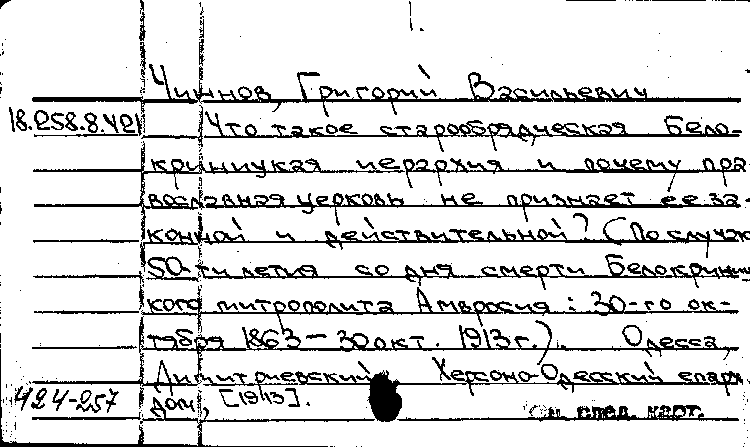 1.
Чиннов, Григорий Васильевич
18.258.8.421 Что такое старообрядческая Бело-
криницкая иерархия и почему пра
вославная церковь не признает ее за-
конной и действительной? (По случаю
50-ти летия со дня смерти Белокриниц
кого митрополита Амвросия: 30-го ок-
тября 1863 – 30 окт. 1913 г.). Одесса,
Димитриевский Херсоно-Одесский епарх
дом, [1913].
424-257
См. след. карт.